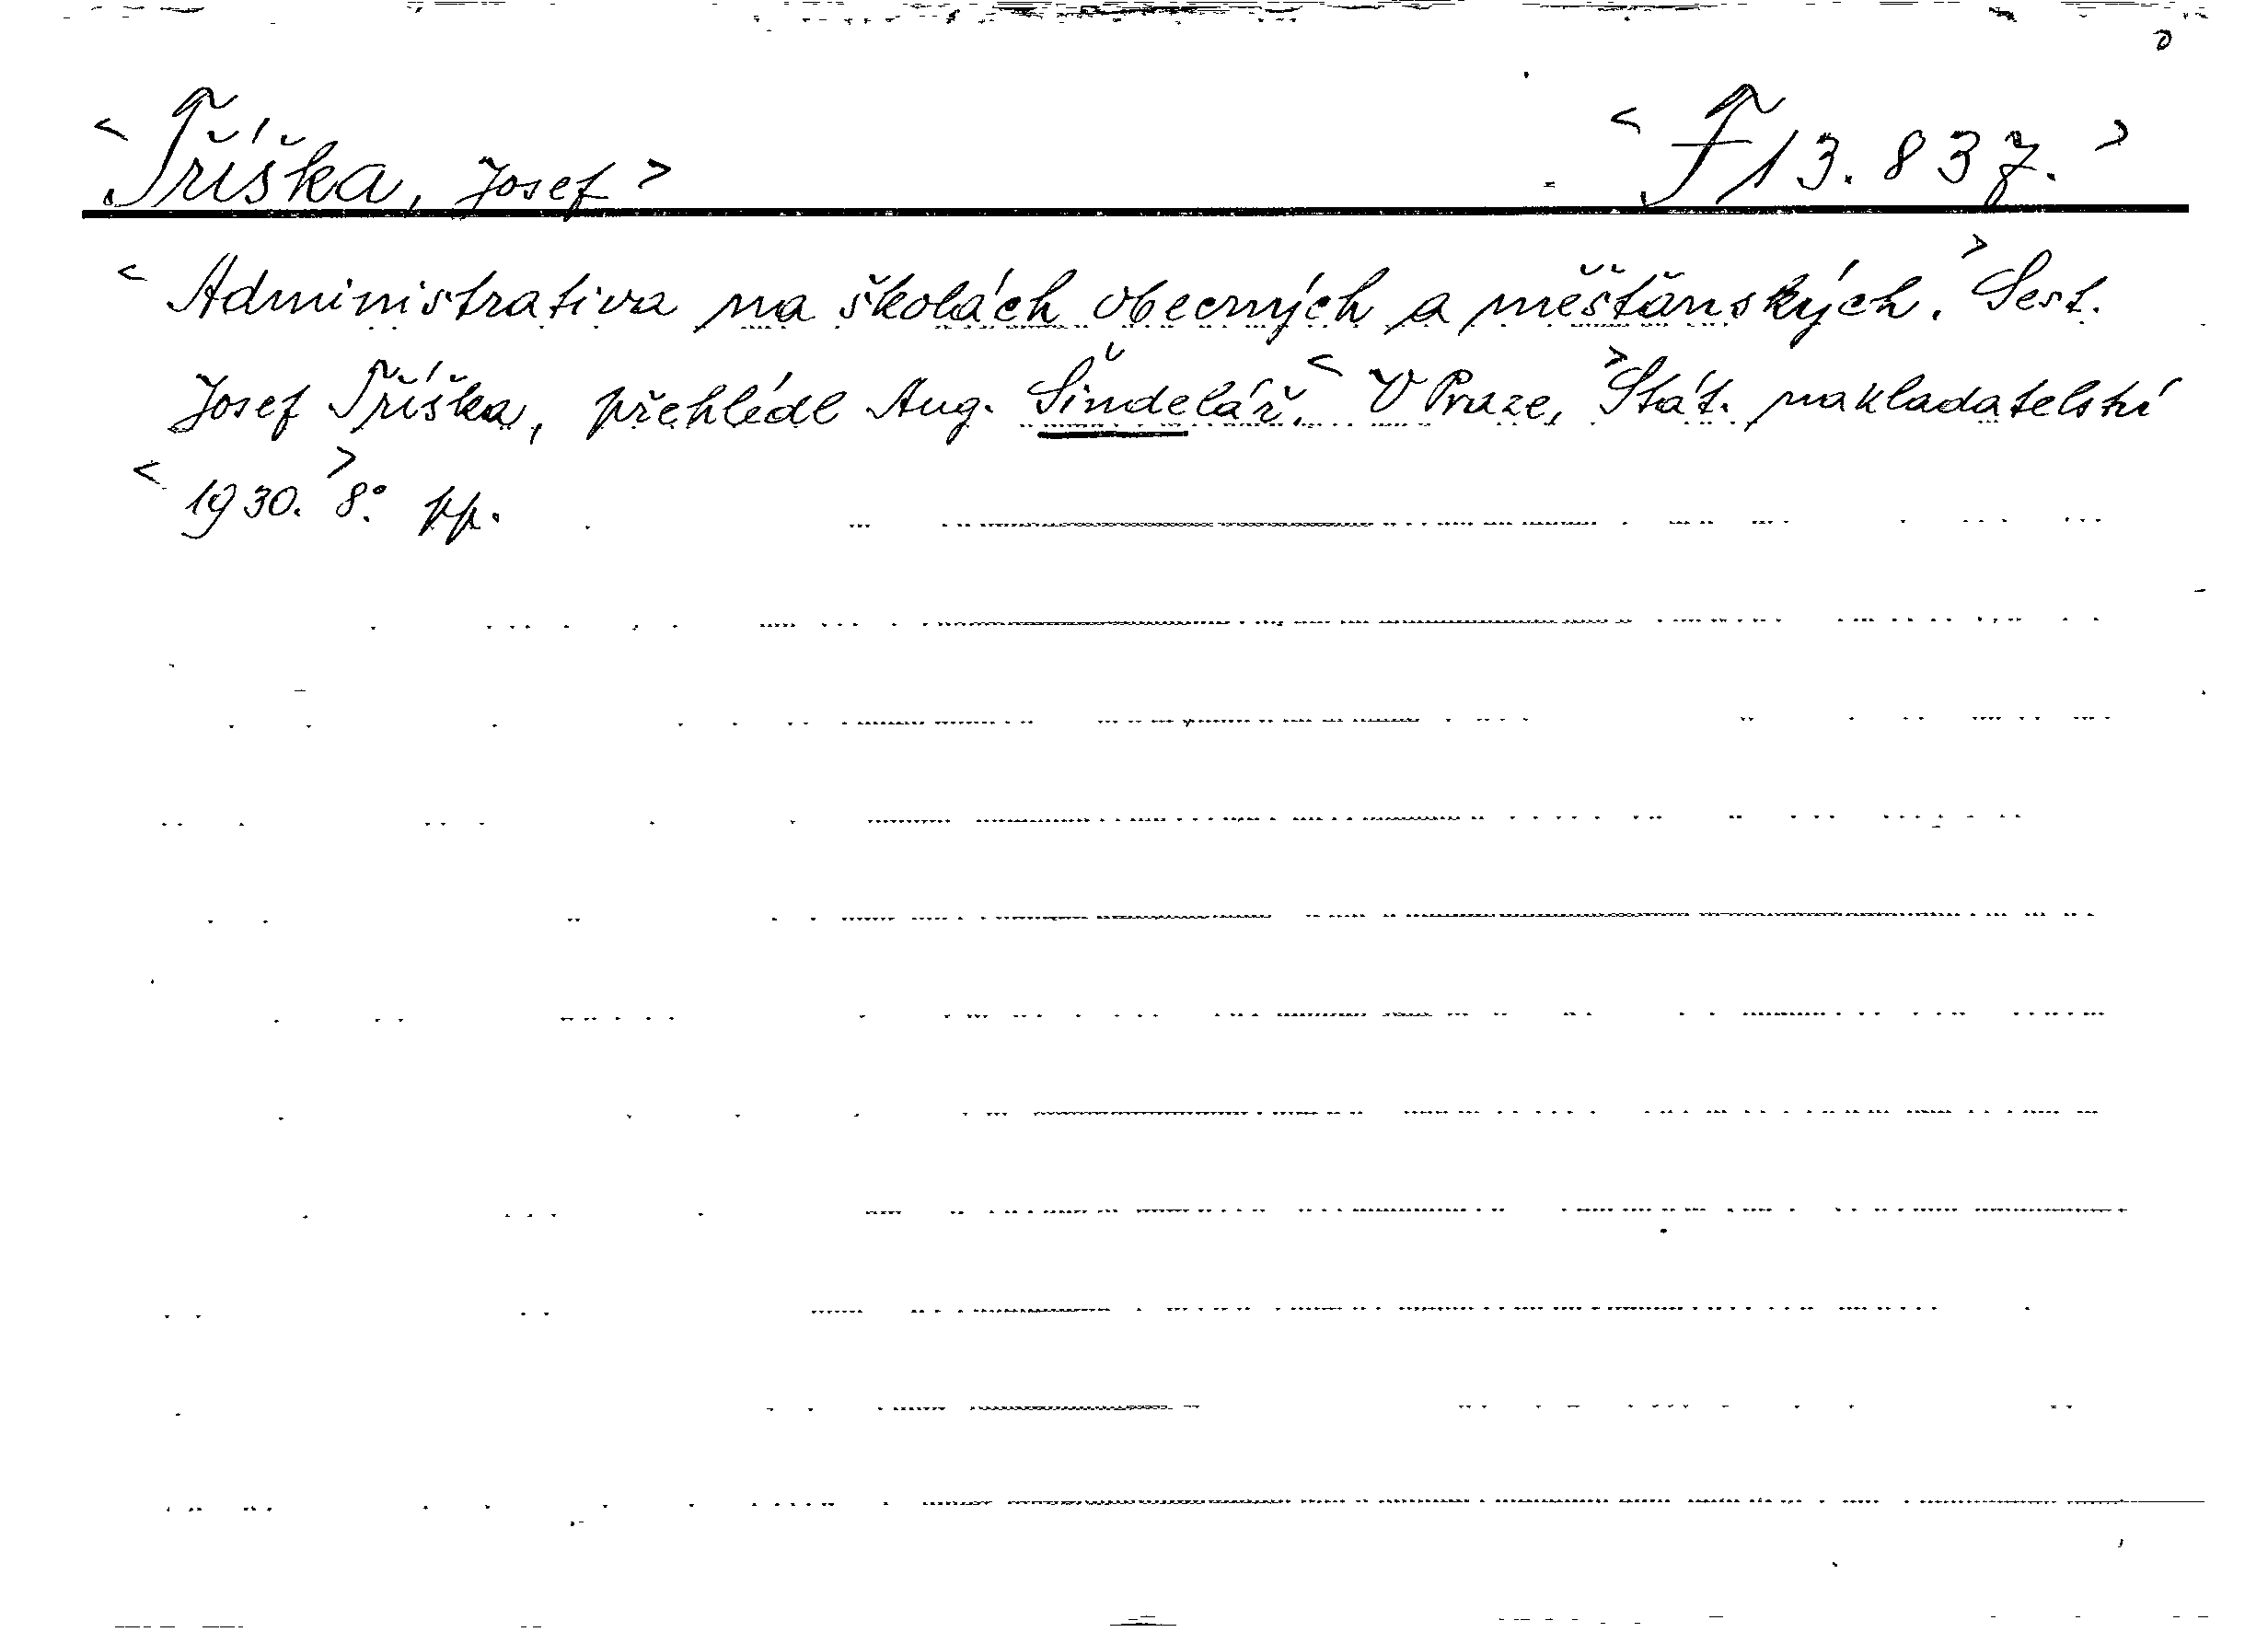 < Tříška, Josef > < F 13.837. >
< Administrativa na školách obecných a měšťanských. > Sest.
Josef Tříška, přehlédl Aug. Šindelář. < V Praze, > Stát. nakladatelství
< 1930. > 8° pp.